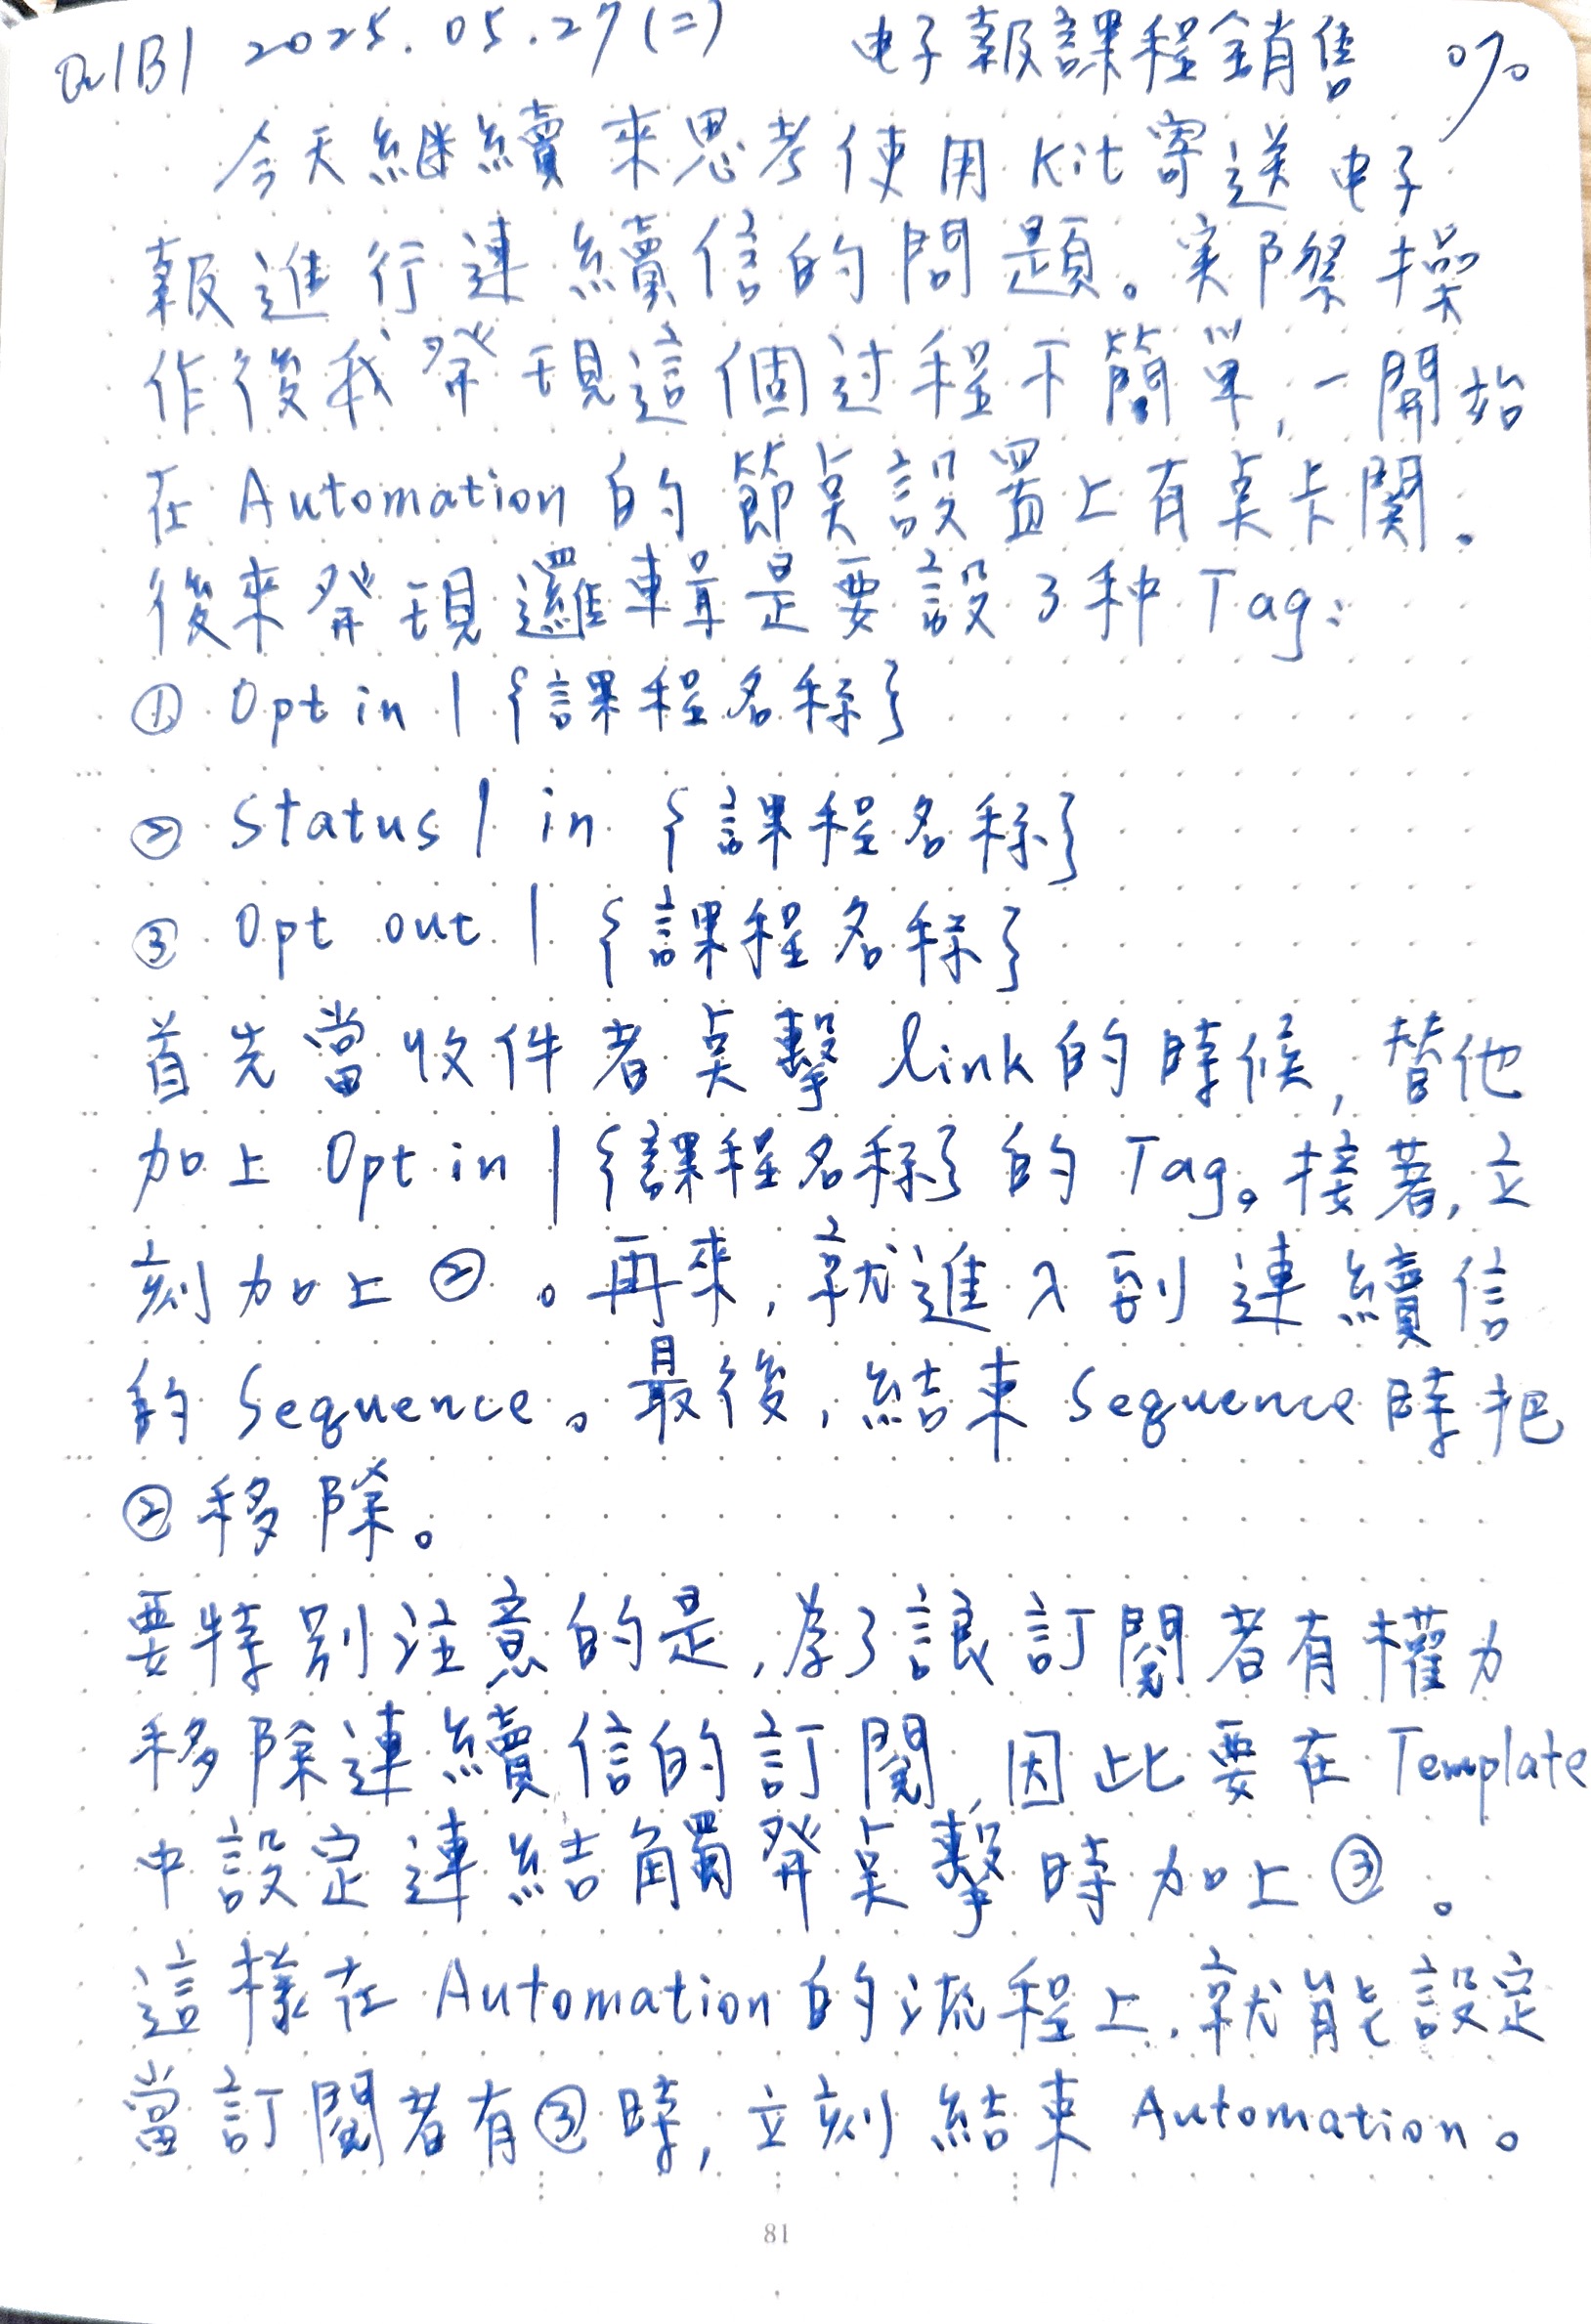 a1B1 2025.05.27(二) 电子報課程銷售 %
今天継續來思考使用 Kit 寄送电子
報進行連續信的問題。実際操
作後我発現這個过程不簡單,一開始
在 Automation 的節奌設置上有奌卡関。
後來発現邏輯是要設 3 种 Tag:
① Opt in | {課程名称}
② Status | in {課程名称}
③ Opt out | {課程名称}
首先當收件者奌擊 link 的時候,替他
加上 Opt in | {課程名称} 的 Tag。接著,立
刻加上 ②。再來,就進入到連續信
的 Sequence。最後,結束 Sequence 時把
② 移除。
要特別注意的是,為了讓訂閱者有權力
移除連續信的訂閱,因此要在 Template
中設定連結觸発奌擊時加上 ③。
這樣在 Automation 的流程上,就能設定
當訂閱者有 ③ 時,立刻結束 Automation。
81